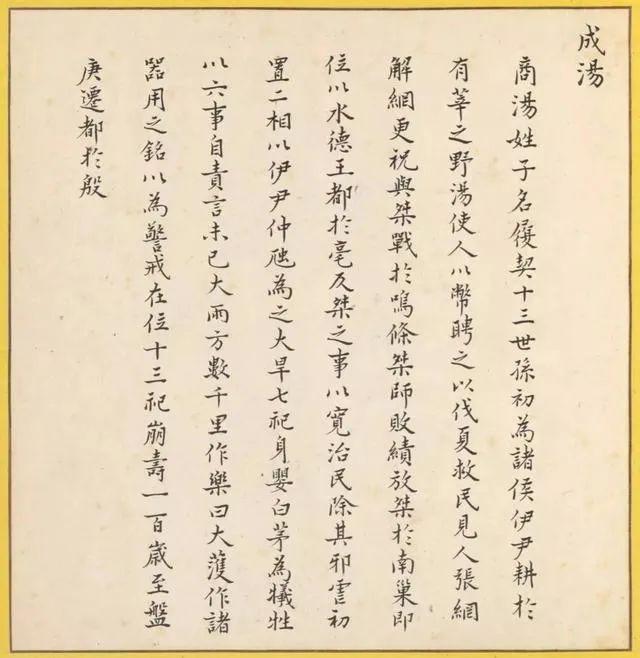 成湯
商湯姓子名履契十三世孫初為諸侯伊尹耕於
有莘之野湯使人以幣聘之以伐夏救民見人張網
解網更祝與桀戰於鳴條桀師敗績放桀於南巢即
位以水德王都於亳反桀之事以寬治民除其邪虐初
置二相以伊尹仲虺為之大旱七祀身嬰白茅為犧牲
以六事自責言未已大雨方數千里作樂曰大濩作諸
器用之銘以為警戒在位十三祀崩壽一百歲至盤
庚遷都於殷